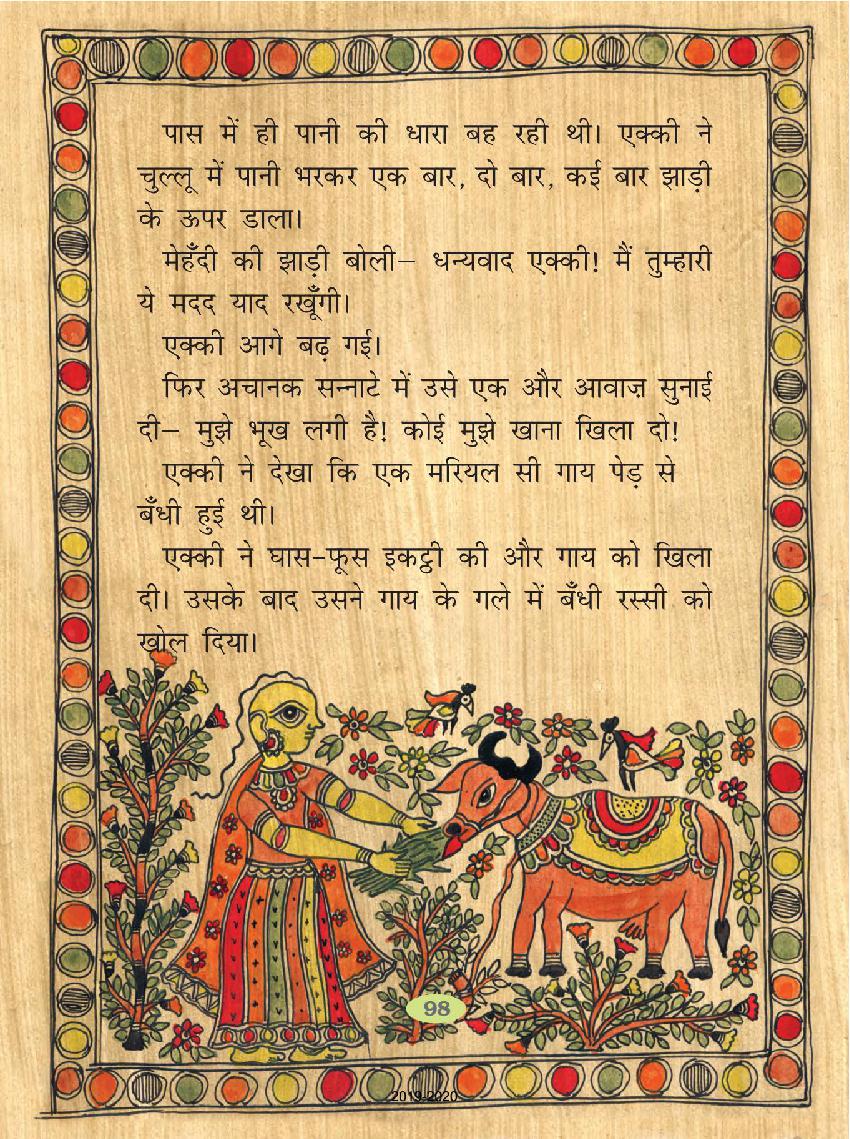 पास में ही पानी की धारा बह रही थी। एक्की ने
चुल्लू में पानी भरकर एक बार, दो बार, कई बार झाड़ी
के ऊपर डाला।
मेहँदी की झाड़ी बोली– धन्यवाद एक्की! मैं तुम्हारी
ये मदद याद रखूँगी।
एक्की आगे बढ़ गई।
फिर अचानक सन्नाटे में उसे एक और आवाज़ सुनाई
दी– मुझे भूख लगी है! कोई मुझे खाना खिला दो!
एक्की ने देखा कि एक मरियल सी गाय पेड़ से
बँधी हुई थी।
एक्की ने घास-फूस इकट्ठी की और गाय को खिला
दी। उसके बाद उसने गाय के गले में बँधी रस्सी को
खोल दिया।
98
2019-2020